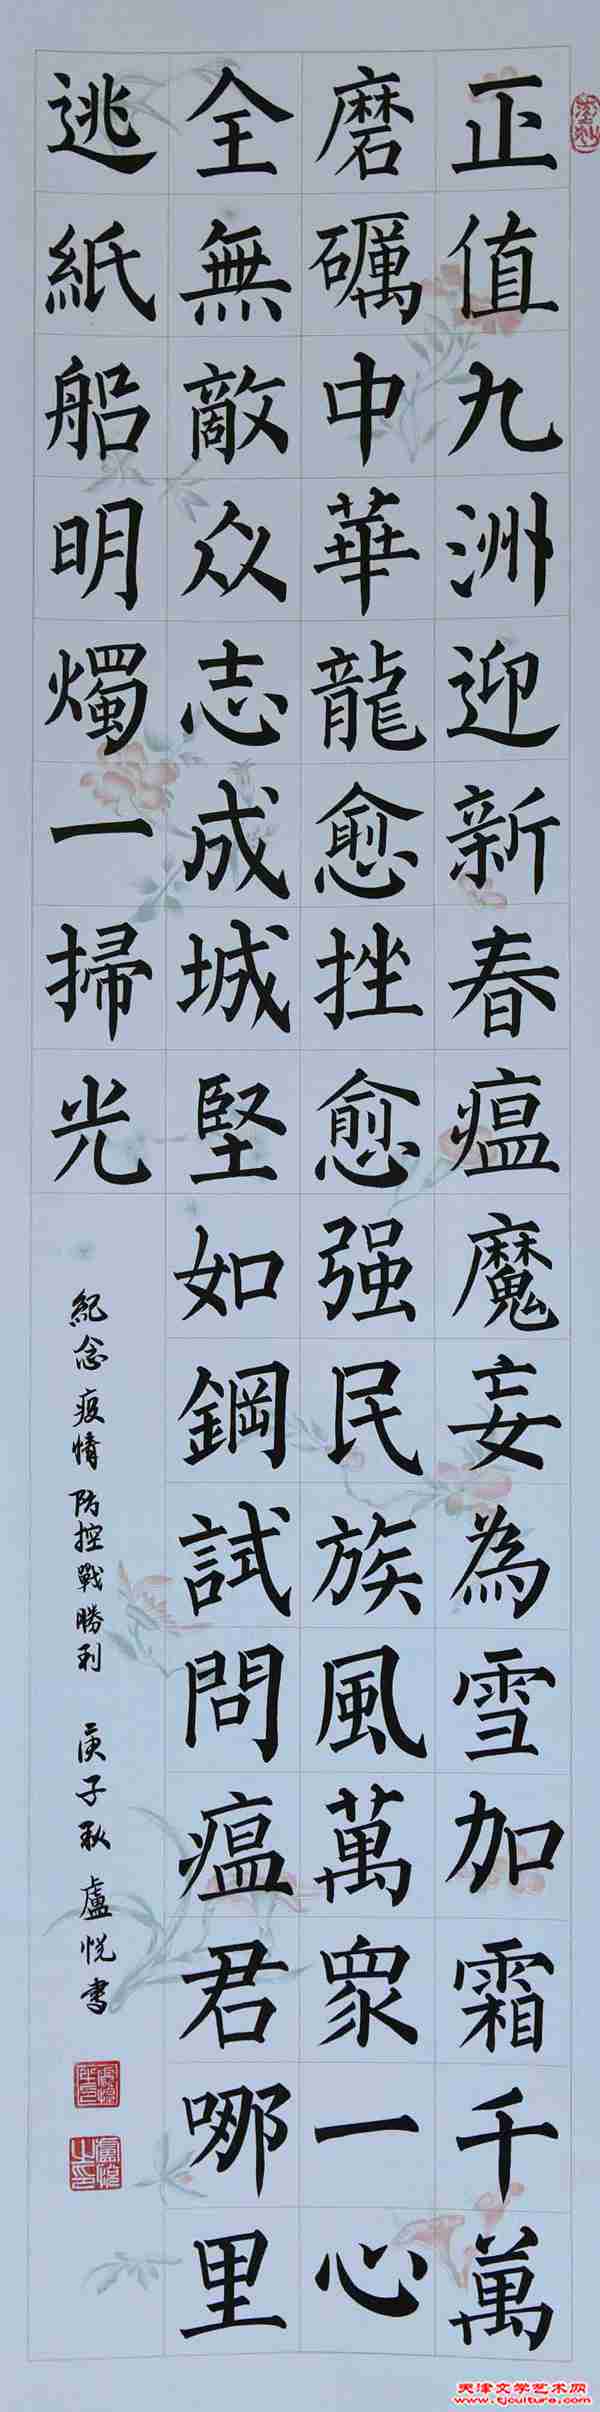 正值九洲迎新春瘟魔妄為雪加霜千萬
磨礪中華龍愈挫愈强民族風萬衆一心
全無敵众志成城堅如鋼試問瘟君哪里
逃紙船明燭一掃光
紀念疫情防控戰勝利 庚子秋 盧悦書
天津文学艺术网
www.tjculture.com